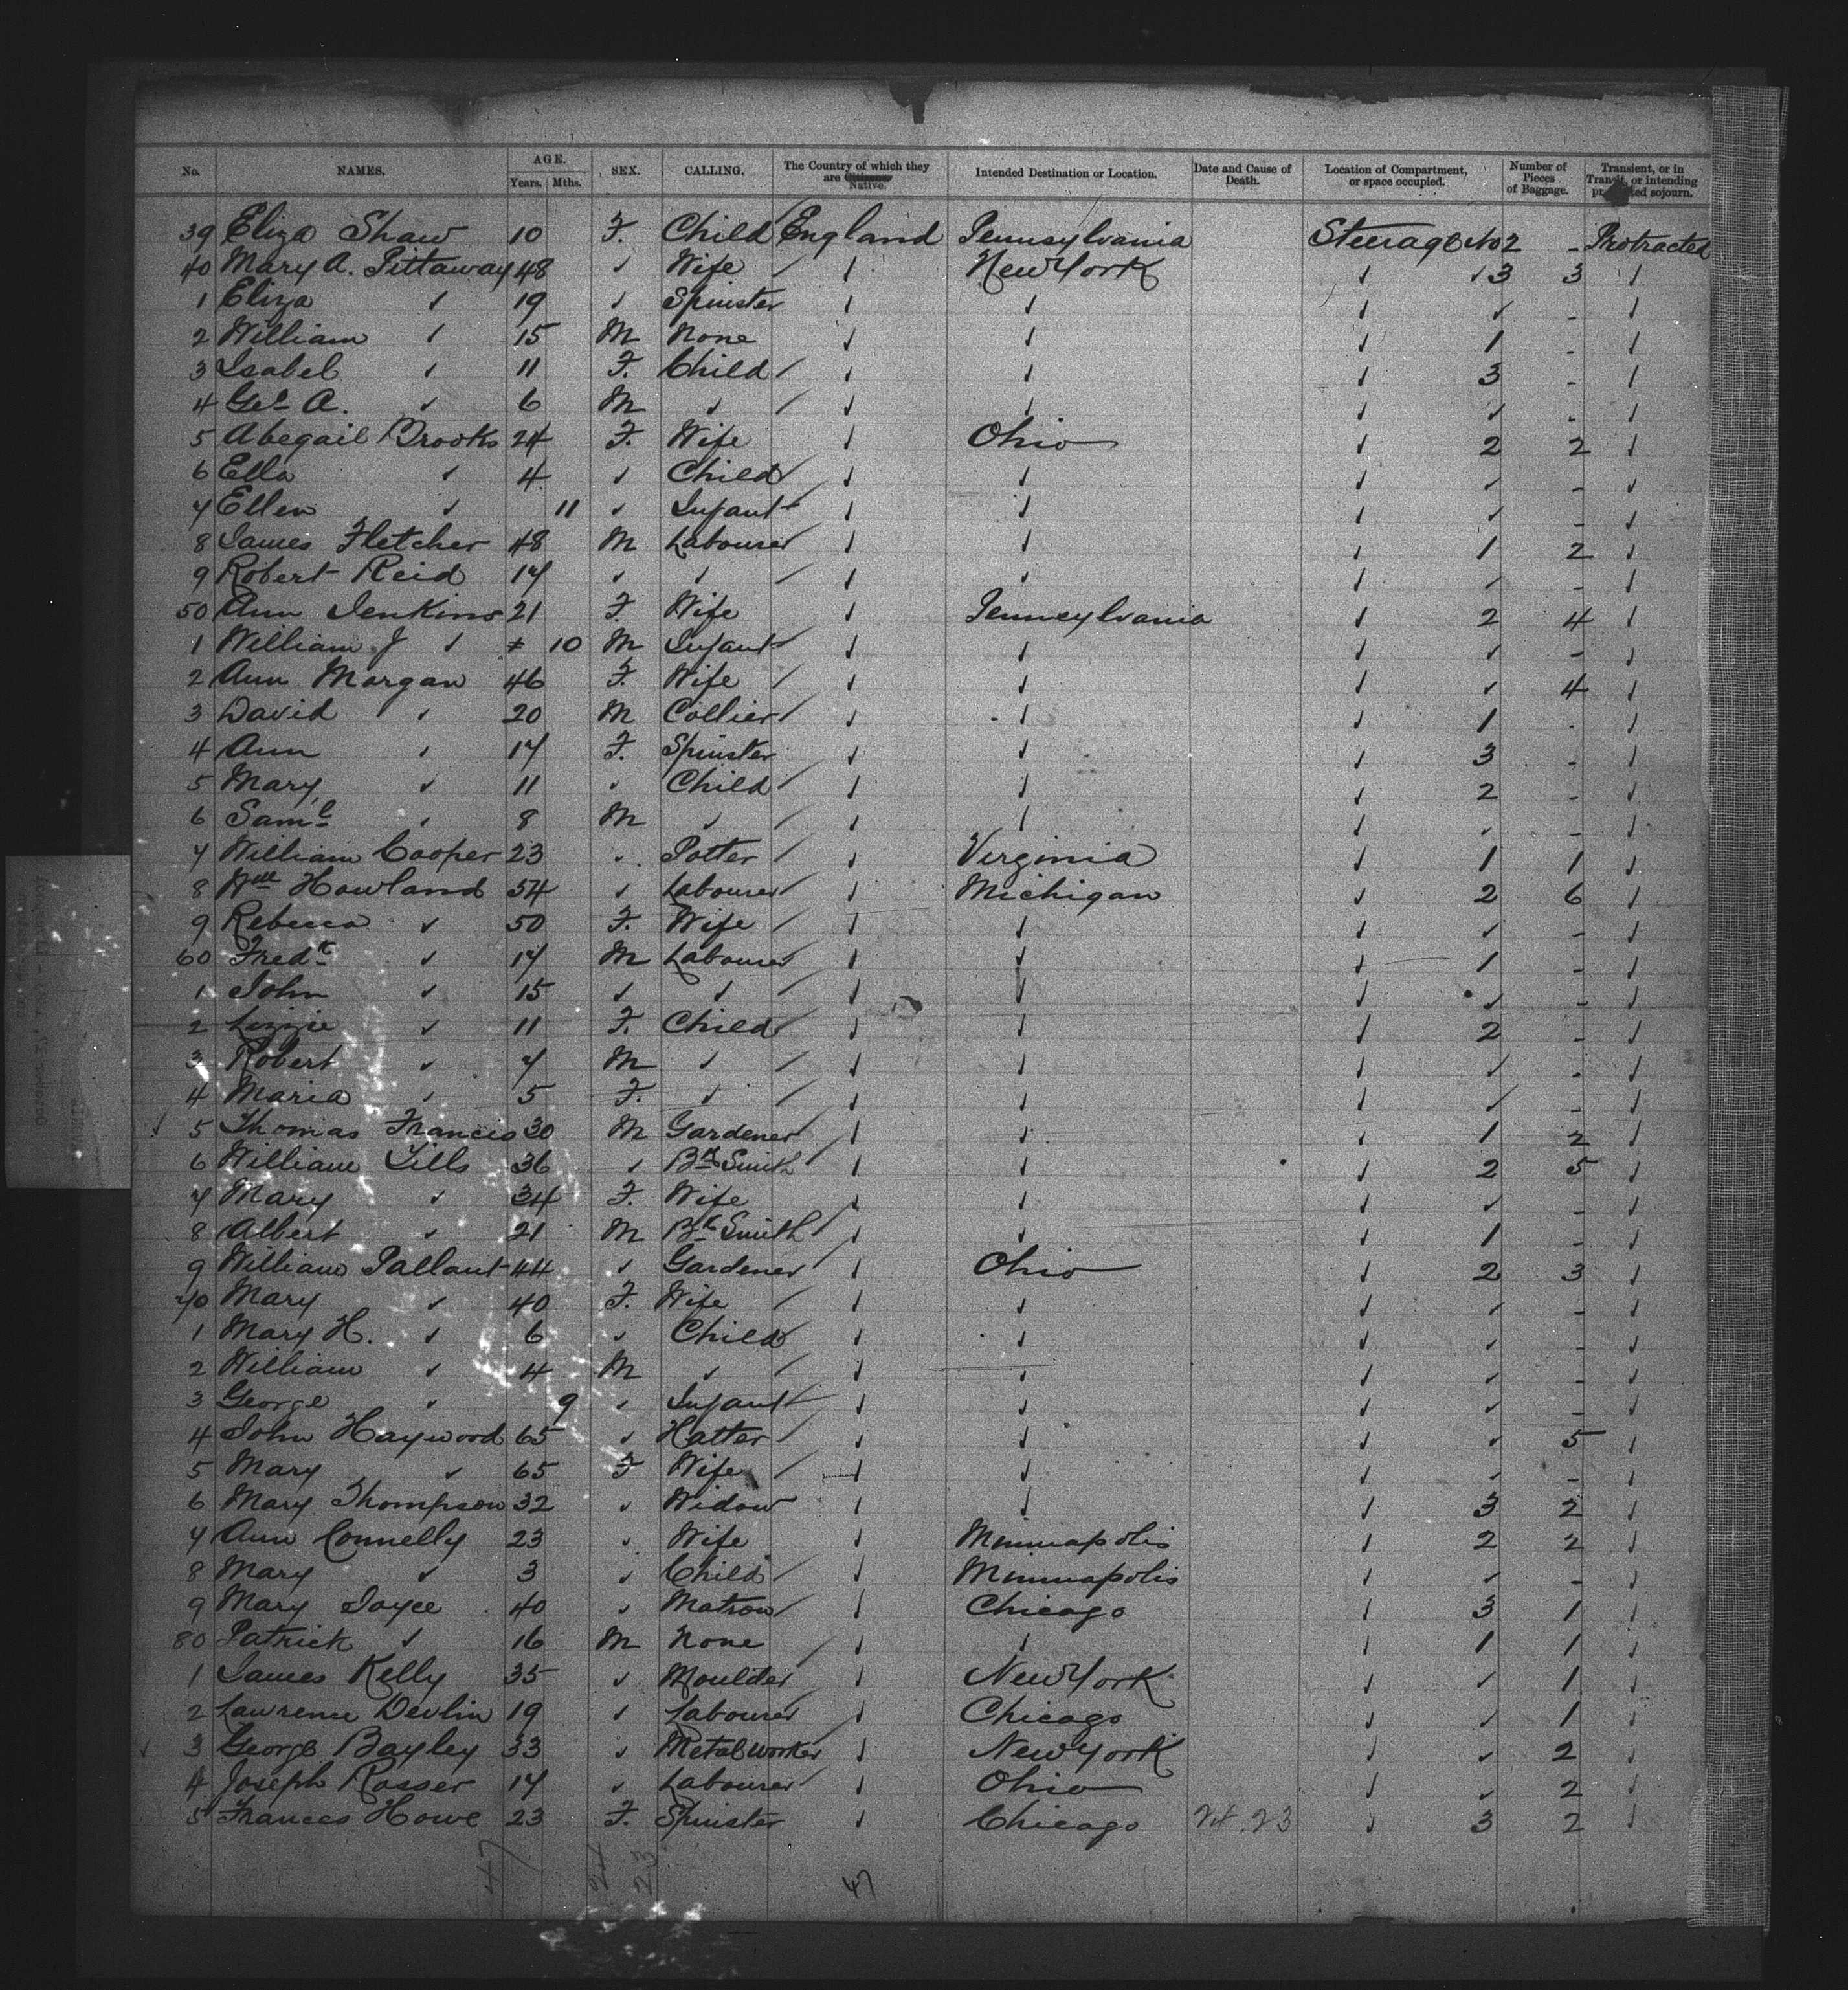 No. NAMES. AGE. Years. Mths. SEX. CALLING. The Country of which they are Citizens Native. Intended Destination or Location. Date and Cause of Death. Location of Compartment, or space occupied. Number of Pieces of Baggage. Transient, or in Transit, or intending protracted sojourn.
39 Eliza Shaw 10 F. Child England Pennsylvania Steerage No 2 - Protracted
40 Mary A. Pittaway 48 ✓ Wife ✓ New York ✓ ✓ 3 3 ✓
1 Eliza ✓ 19 ✓ Spinster ✓ ✓ ✓ ✓ - ✓
2 William ✓ 15 M None ✓ ✓ ✓ 1 - ✓
3 Isabel ✓ 11 F. Child ✓ ✓ ✓ 3 - ✓
4 Geo A. ✓ 6 M ✓ ✓ ✓ ✓ ✓ - ✓
5 Abegail Brooks 24 F. Wife ✓ Ohio ✓ 2 2 ✓
6 Ella ✓ 4 ✓ Child ✓ ✓ ✓ ✓ - ✓
7 Ellen ✓ 11 ✓ Infant ✓ ✓ ✓ ✓ - ✓
8 James Fletcher 48 M Labourer ✓ ✓ ✓ 1 2 ✓
9 Robert Reid 17 ✓ ✓ ✓ ✓ ✓ ✓ - ✓
50 Ann Jenkins 21 F. Wife ✓ Pennsylvania ✓ 2 4 ✓
1 William J ✓ 10 M Infant ✓ ✓ ✓ ✓ - ✓
2 Ann Morgan 46 F. Wife ✓ ✓ ✓ ✓ 4 ✓
3 David ✓ 20 M Collier ✓ ✓ ✓ 1 - ✓
4 Ann ✓ 17 F. Spinster ✓ ✓ ✓ 3 - ✓
5 Mary ✓ 11 ✓ Child ✓ ✓ ✓ 2 - ✓
6 Saml ✓ 8 M ✓ ✓ ✓ ✓ ✓ - ✓
7 William Cooper 23 ✓ Potter ✓ Virginia ✓ 1 1 ✓
8 Wm Howland 54 ✓ Labourer ✓ Michigan ✓ 2 6 ✓
9 Rebecca ✓ 50 F. Wife ✓ ✓ ✓ ✓ - ✓
60 Fredk ✓ 17 M Labourer ✓ ✓ ✓ 1 - ✓
1 John ✓ 15 ✓ ✓ ✓ ✓ ✓ ✓ - ✓
2 Lizzie ✓ 11 F. Child ✓ ✓ ✓ 2 - ✓
3 Robert ✓ 7 M ✓ ✓ ✓ ✓ ✓ - ✓
4 Maria ✓ 5 F. ✓ ✓ ✓ ✓ ✓ - ✓
✓ 5 Thomas Francis 30 M Gardener ✓ ✓ ✓ 1 2 ✓
6 William Tills 36 ✓ Bk Smith ✓ ✓ ✓ 2 5 ✓
7 Mary ✓ 34 F. Wife ✓ ✓ ✓ ✓ - ✓
8 Albert ✓ 21 M Bk Smith ✓ ✓ ✓ 1 - ✓
9 William Pallant 44 ✓ Gardener ✓ Ohio ✓ 2 3 ✓
70 Mary ✓ 40 F. Wife ✓ ✓ ✓ ✓ - ✓
1 Mary H. ✓ 6 ✓ Child ✓ ✓ ✓ ✓ - ✓
2 William ✓ 4 M ✓ ✓ ✓ ✓ ✓ - ✓
3 George ✓ 9 ✓ Infant ✓ ✓ ✓ ✓ - ✓
4 John Haywood 65 ✓ Hatter ✓ ✓ ✓ ✓ 5 ✓
5 Mary ✓ 65 F Wife ✓ ✓ ✓ ✓ - ✓
6 Mary Thompson 32 ✓ Widow ✓ ✓ ✓ 3 2 ✓
7 Ann Connelly 23 ✓ Wife ✓ Minnuapolis ✓ 2 2 ✓
8 Mary ✓ 3 ✓ Child ✓ Minnuapolis ✓ ✓ - ✓
9 Mary Joyce 40 ✓ Matron ✓ Chicago ✓ 3 1 ✓
80 Patrick ✓ 16 M None ✓ ✓ ✓ 1 1 ✓
1 James Kelly 35 ✓ Moulder ✓ New York ✓ ✓ 1 ✓
2 Lawrence Devlin 19 ✓ Labourer ✓ Chicago ✓ ✓ 1 ✓
✓ 3 George Bayley 33 ✓ Metal Worker ✓ New York ✓ ✓ 2 ✓
4 Joseph Rosser 17 ✓ Labourer ✓ Ohio ✓ ✓ 2 ✓
5 Frances Howe 23 F. Spinster ✓ Chicago 24.23 ✓ 3 2 ✓
47 24 23 47